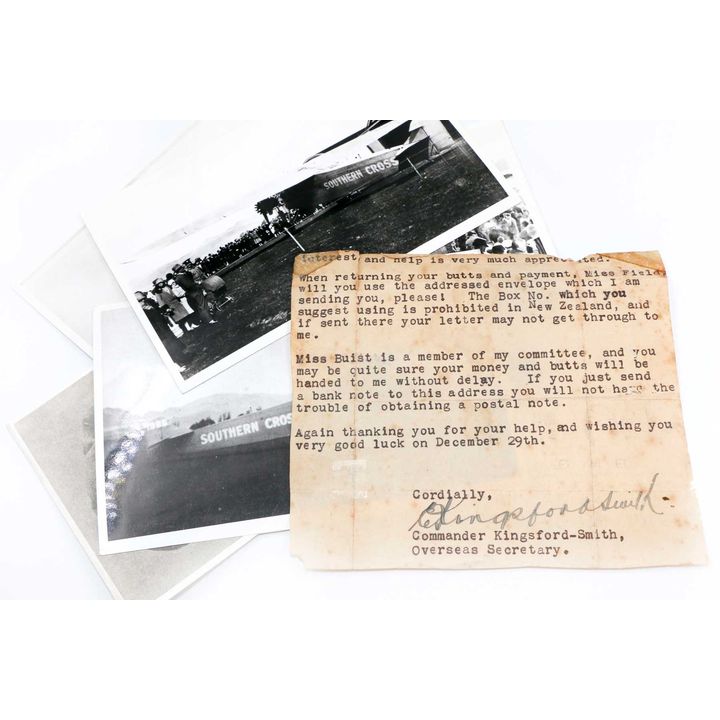 SOUTHERN CROSS
SOUTHERN CROSS
interest and help is very much appreciated.
When returning your butts and payment, Miss Field,
will you use the addressed envelope which I am
sending you, please! The Box No. which you
suggest using is prohibited in New Zealand, and
if sent there your letter may not get through to
me.
Miss Buist is a member of my committee, and you
may be quite sure your money and butts will be
handed to me without delay. If you just send
a bank note to this address you will not have the
trouble of obtaining a postal note.
Again thanking you for your help, and wishing you
very good luck on December 29th.
Cordially,
CKingsfordSmith
Commander Kingsford-Smith,
Overseas Secretary.